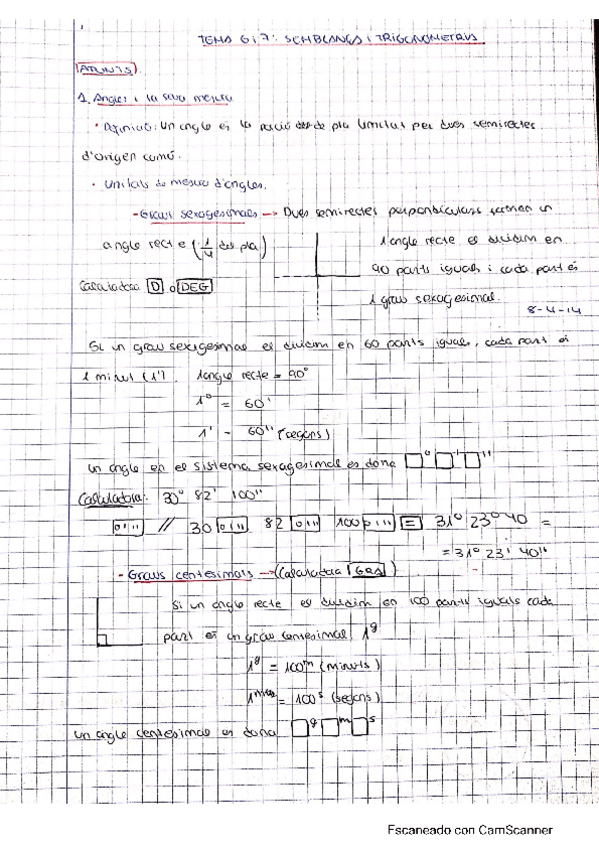 TEMA 6 i 7: SEMBLANÇA i TRIGONOMETRIA
APUNTS
1. Angles i la seva mesura
• Definició: Un angle és la de pla limitat per dues semirectes
d'origen comú.
• Unitats de mesura d'angles.
- Graus sexagesimals → Dues semirectes perpendiculars formen un
angle recte (1/4 del pla)
1 angle recte es dividim en
90 parts iguals i cada part és
Calculadora D o DEG
1 grau sexagesimal.
8-4-14
Si un grau sexagesimal es dividim en 60 parts iguals, cada part és
1 minut (1'). 1 angle recte = 90°
1° = 60'
1' = 60'' (segons)
un angle en es sistema sexagesimal es dona □° □' □''
Calculadora: 30° 82' 100''
0''' // 30 0''' 82 0''' 100 0''' = 31° 23° 40 =
= 31° 23' 40''
- Graus centesimals → (Calculadora GRA)
Si un angle recte es dividim en 100 parts iguals cada
part és un grau centesimal 1g
1g = 100m (minuts)
1 = 100s (segons)
un angle centesimal es dona □g □m □s
Escaneado con CamScanner